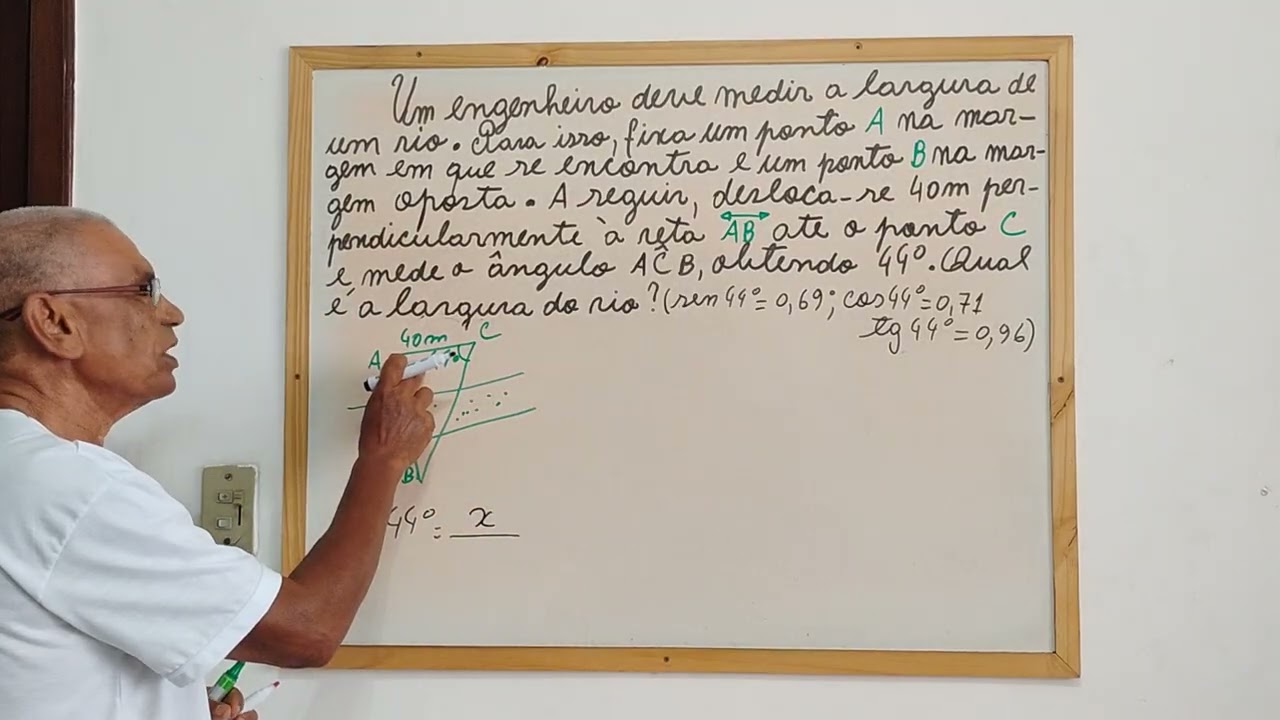 Um engenheiro deve medir a largura de
um rio. Para isso, fixa um ponto A na mar-
gem em que se encontra e um ponto B na mar-
gem oposta. A seguir, desloca-se 40m per-
pendicularmente à reta AB até o ponto C
e mede o ângulo AĈB, obtendo 44º. Qual
é a largura do rio? (sen 44º = 0,69; cos 44º = 0,71
tg 44º = 0,96)
40m C
A
B
44º = x